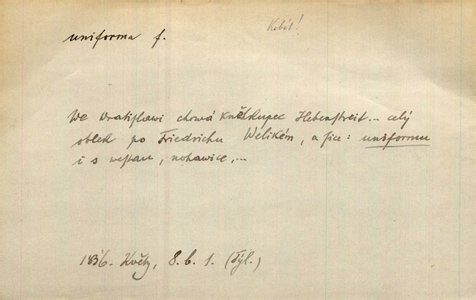 uniforma f.
We Vratislawi chowá kněhkupec Hebenstreit... celý
oblek po Friedrichu Welikém, a sice: uniformu
i s westau, nohawice,...
1836. Květy, 8. b. 1. (Tyl.)